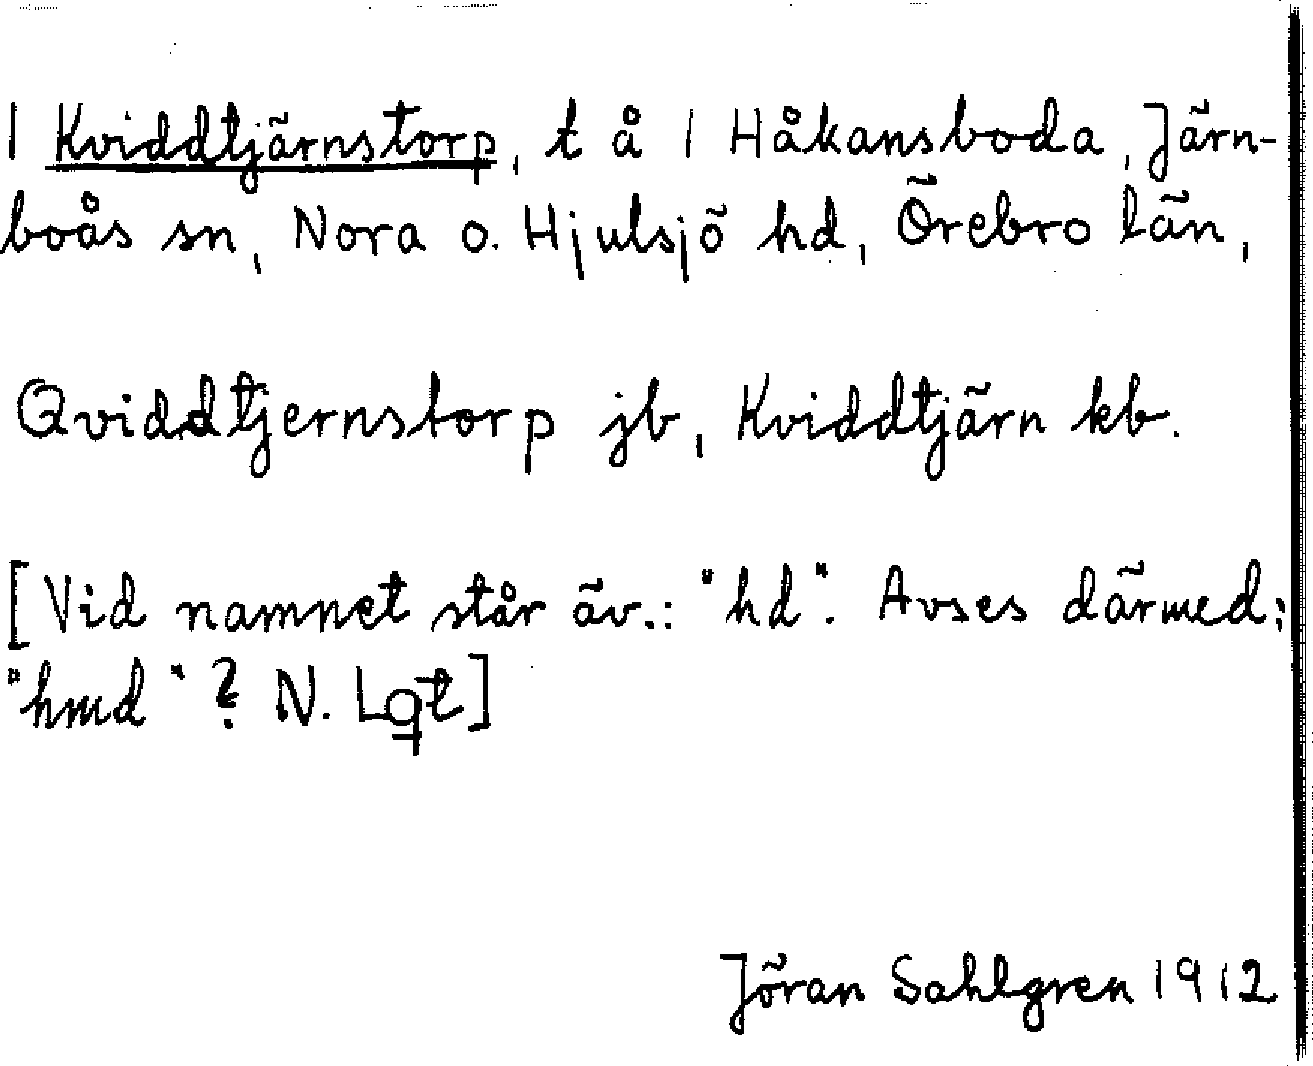 1 Kviddtjärnstorp, t å 1 Håkansboda, Järn-
boås sn, Nora o. Hjulsjö hd, Örebro län,
Qviddtjernstorp jb, Kviddtjärn kb.
[Vid namnet står äv.: "hd". Avses därmed:
"hmd"? N. Lgt]
Jöran Sahlgren 1912